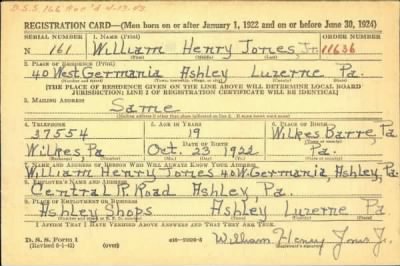 D.S.S. 166
REGISTRATION CARD—(Men born on or after January 1, 1922 and on or before June 30, 1924)
SERIAL NUMBER 1. NAME (Print) ORDER NUMBER
N 161 William Henry Jones, Jr. 11636
2. PLACE OF RESIDENCE (Print)
40 West Germania Ashley Luzerne Pa.
[THE PLACE OF RESIDENCE GIVEN ON THE LINE ABOVE WILL DETERMINE LOCAL BOARD
JURISDICTION; LINE 2 OF REGISTRATION CERTIFICATE WILL BE IDENTICAL]
3. MAILING ADDRESS
Same
4. TELEPHONE 5. AGE IN YEARS 6. PLACE OF BIRTH
37554 19 Wilkes Barre, Pa
DATE OF BIRTH
Wilkes Pa Oct. 23 1922 Pa.
7. NAME AND ADDRESS OF PERSON WHO WILL ALWAYS KNOW YOUR ADDRESS
William Henry Jones 40 W. Germania, Ashley, Pa.
8. EMPLOYER'S NAME AND ADDRESS
Central R. Road Ashley, Pa.
9. PLACE OF EMPLOYMENT OR BUSINESS
Ashley Shops Ashley Luzerne Pa
I AFFIRM THAT I HAVE VERIFIED ABOVE ANSWERS AND THAT THEY ARE TRUE.
D. S. S. Form 1 (over) William Henry Jones Jr.